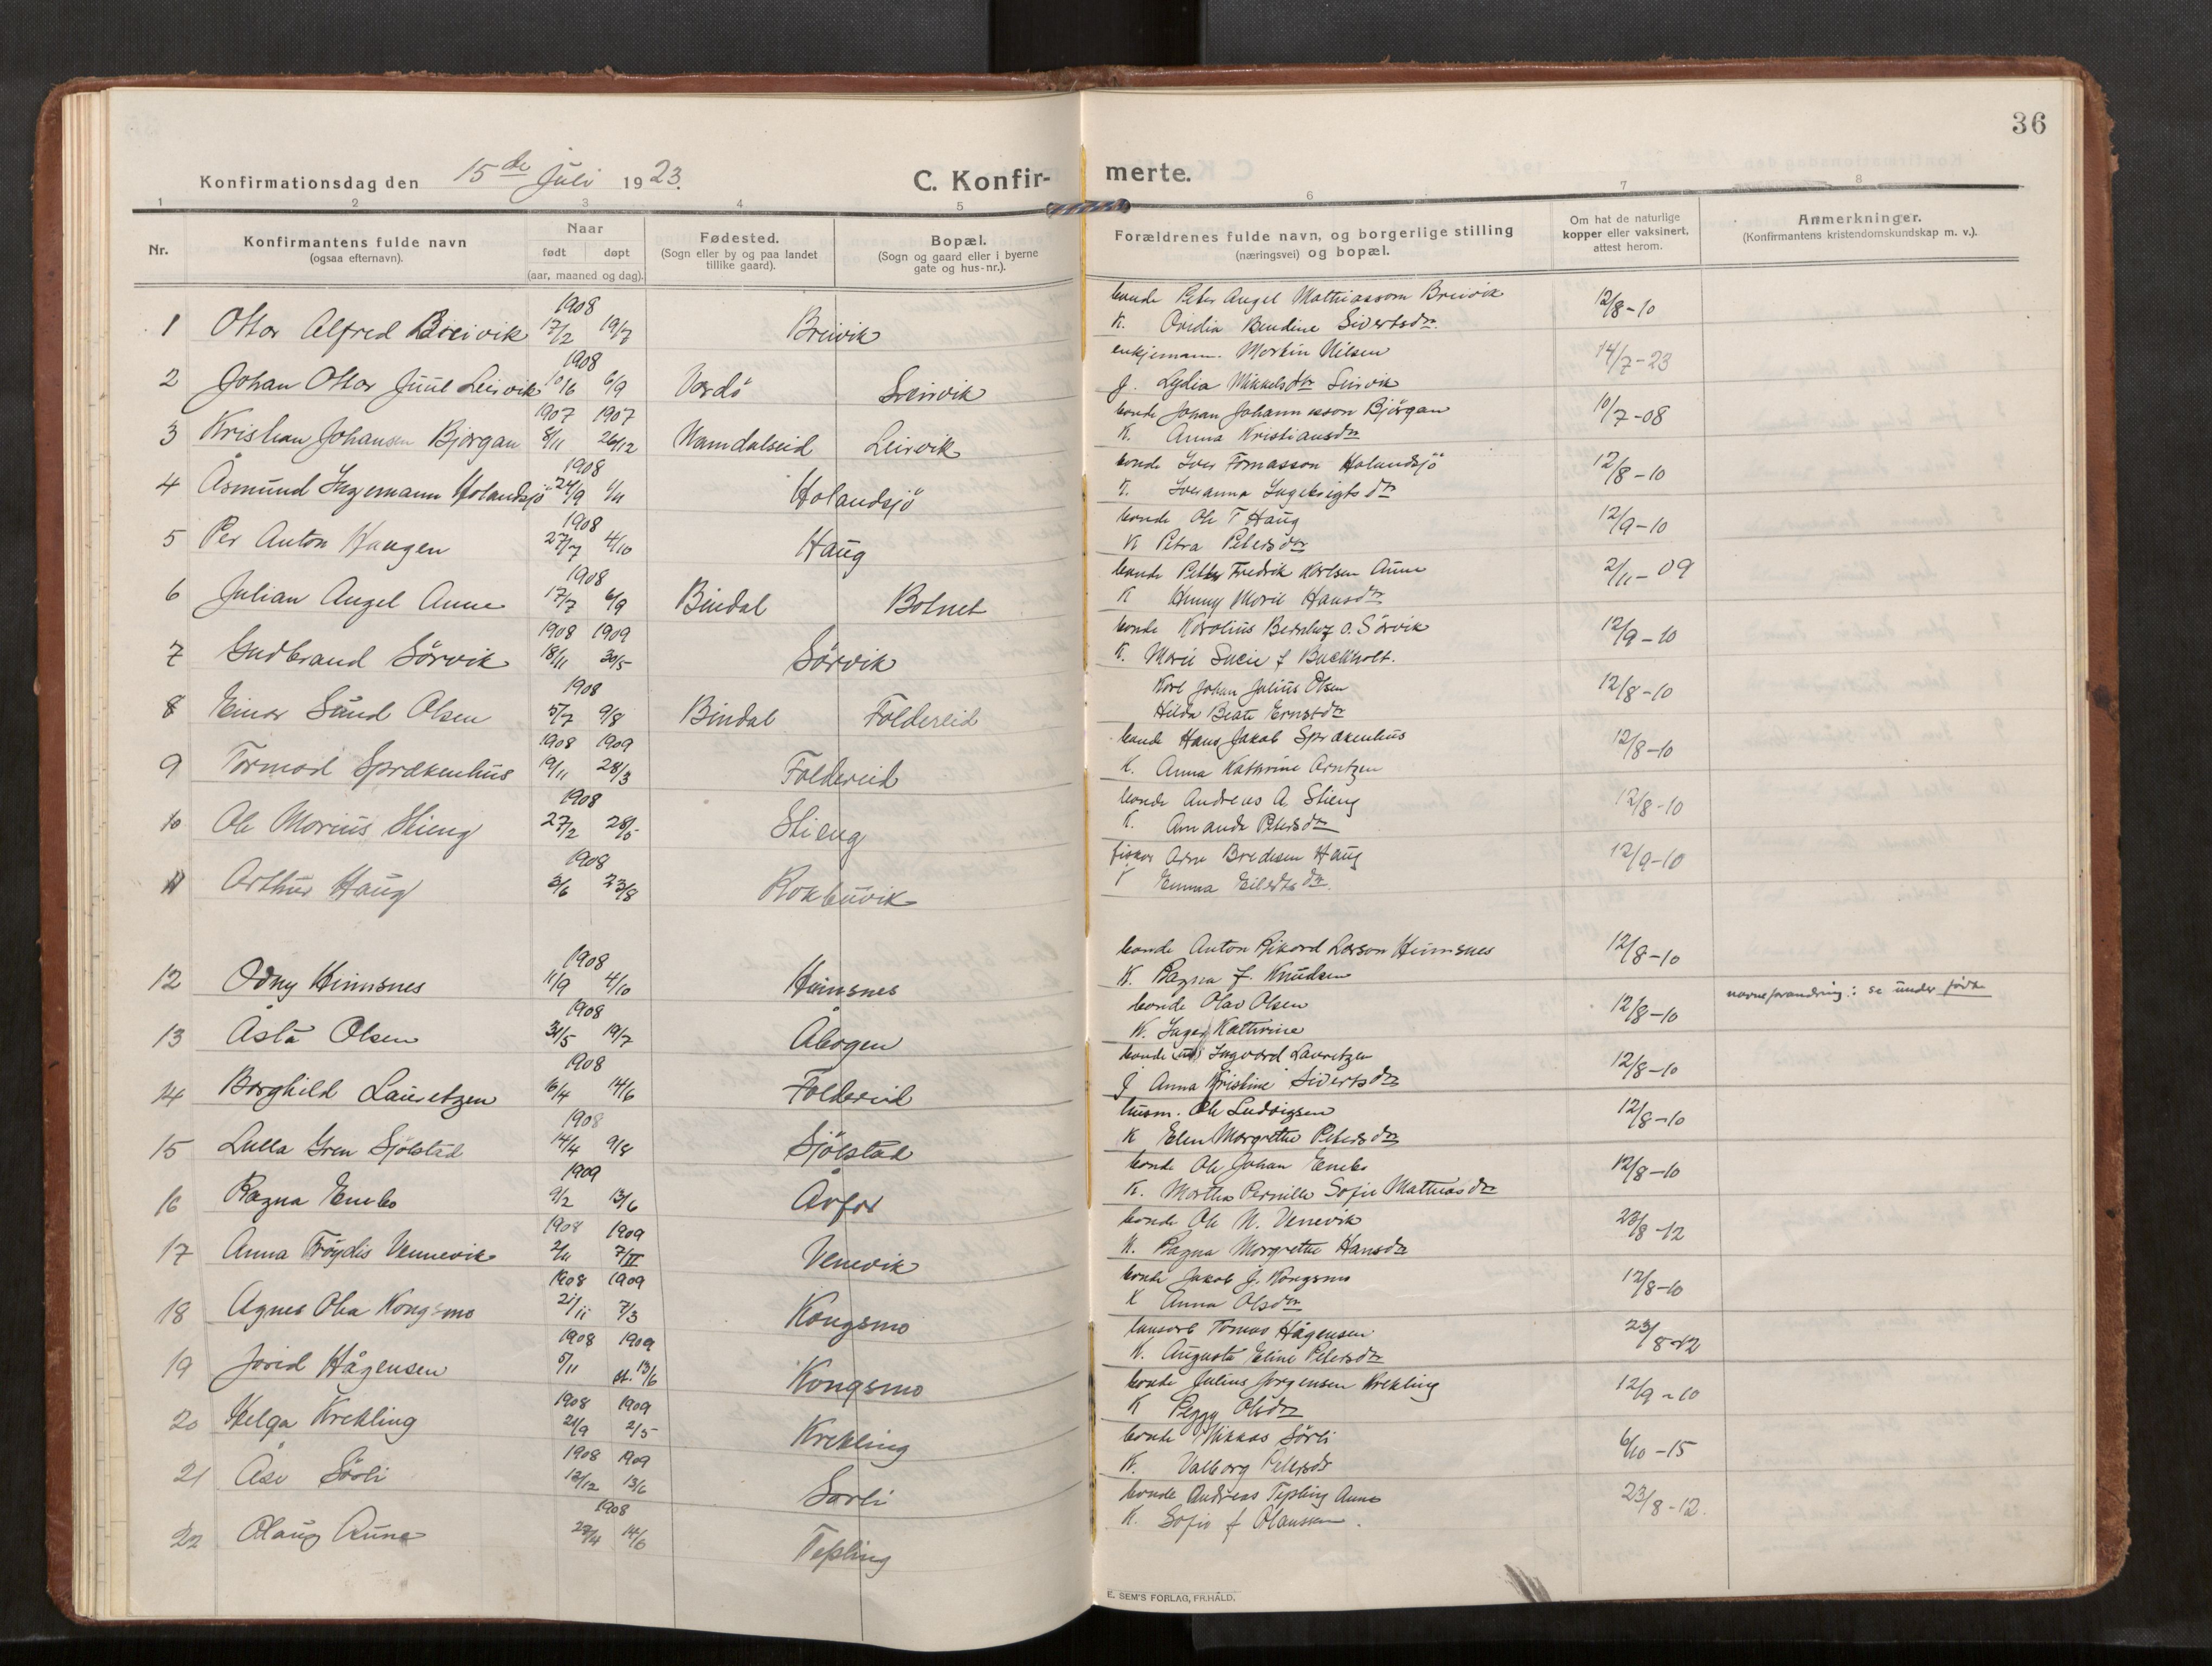 36
Konfirmationsdag den 15de Juli 1923.
C. Konfir- merte.
1 2 3 4 5 6 7 8
Nr.
Konfirmantens fulde navn
(ogsaa efternavn).
Naar
født døpt
(aar, maaned og dag).
Fødested.
(Sogn eller by og paa landet
tillike gaard).
Bopæl.
(Sogn og gaard eller i byerne
gate og hus-nr.).
Forældrenes fulde navn, og borgerlige stilling
(næringsvei) og bopæl.
Om hat de naturlige
kopper eller vaksinert,
attest herom.
Anmerkninger.
(Konfirmantens kristendomskundskap m. v.).
1908 bonde Peter Angel Mathiassom Breivik
1 Ottar Alfred Breivik 17/2 19/7 Breivik K. Ovidia Bendine Sivertsdtr. 12/8-10
1908 enkjemann. Martin Nilsen
2 Johan Ottar Juul Leirvik 10/6 6/9 Vardö Leirvik g. Lydia Mikkelsdtr Leirvik 14/7-23
1907 1907 bonde Johan Johannesson Björgan
3 Kristian Johansen Björgan 8/11 26/12 Namdalseid Leirvik K. Anna Kristiansdtr 10/7-08
1908 bonde Iver Tomasson Holandsjö
4 Åsmund Ingemann Holandsjö 24/9 1/11 Holandsjö K. Iveranna Ingebrigtsdtr 12/8-10
1908 bonde Ole T Haug
5 Per Anton Haugen 27/7 4/10 Haug K Petra Petersdtr 12/9-10
1908 bonde Petter Fredrik Karlsen Aune
6 Julian Angel Aune 17/7 6/9 Bindal Botnet K Henny Marie Hansdtr 2/11-09
1908 1909 bonde Karolius Bernhof O. Sörvik
7 Gudbrand Sörvik 18/11 30/5 Sörvik K. Marie Lucie f Buckholt. 12/9-10
1908 Karl Johan Julius Olsen
8 Einar Sund Olsen 5/7 9/8 Bindal Foldereid Hilda Beate Ernstdtr 12/8-10
1908 1909 bonde Hans Jakob Sprækenhus
9 Tormod Sprækenhus 19/11 28/3 Foldereid K. Anna Kathrine Arntzen 12/8-10
1908 bonde Andreas A. Slieng
10 Ole Marius Slieng 27/2 28/5 Slieng K. Amanda Petersdtr 12/8-10
1908 fisker Arne Bredesen Haug
11 Arthur Haug 3/6 23/8 Rokbuvik Emma Eilertsdtr. 12/9-10
1908 bonde Anton Rikard Larson Heimsnes
12 Odny Heimsnes 11/9 4/10 Heimsnes K. Ragna f. Knudsen 12/8-10
1908 bonde Olav Olsen
13 Åsta Olsen 31/5 19/7 Åbogen K. Inger Kathrine 12/8-10 navneforandring: se under födte
1908 bonde Ingvard Lauretzen
14 Borghild Lauretzen 16/4 14/6 Foldereid g Anna Kristine Sivertsdtr 12/8-10
1908 husm. Ole Ludvigsen
15 Lulla Gren Sjölstad 14/4 9/8 Sjölstad K Elen Margrethe Petersdtr 12/8-10
1909 bonde Ole Johan Enebo
16 Ragna Enebo 9/2 13/6 Årfor K. Martha Pernille Sofie Mathiasdtr 12/8-10
1908 1909 bonde Ole N. Venevik
17 Anna Fröydis Vennevik 2/11 7/II Venevik K. Ragna Margrethe Hansdtr 23/8-12
1908 1909 bonde Jakob J. Kongsmo
18 Agnes Olea Kongsmo 21/11 7/3 Kongsmo K Anna Olsdtr 12/8-10
1908 1909 Tomas Hågensen
19 Jorid Hågensen 5/11 st. 13/6 Kongsmo K. Augusta Eline Petersdtr 23/8-12
1908 1909 bonde Julius Jorgensen Krekling
20 Helga Krekling 21/9 2/5 Krekling K Peggy Olsdtr 12/9-10
1908 1909 bonde Niklas Sörli
21 Åse Sörli 12/12 13/6 Sörli K. Valborg Petersdtr 6/10-15
1908 bonde Andreas Tepling Aune
22 Olaug Aune 27/4 14/6 Tepling K. Sofie f Olaussen. 23/8-12.
E. SEM'S FORLAG, FR.HALD.